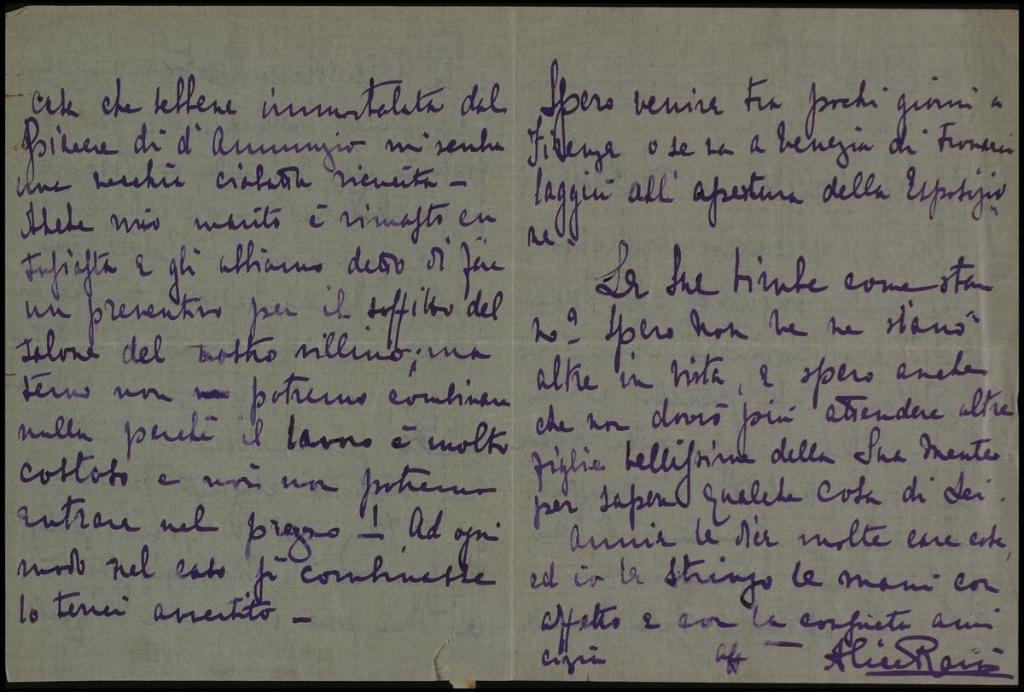 casa che sebbene immortalata dal
Piacere di d'Annunzio mi sembra
una vecchia ciabatta ricucita –
Anche mio marito è rimasto en
tusiasta e gli abbiamo detto di fare
un preventivo per il soffitto del
salone del nostro villino; ma
temo non potremo combinare
nulla perché il lavoro è molto
costoso e noi non potremo
entrare nel prezzo –! Ad ogni
modo nel caso si combinasse
lo terrei avvertito –
Spero venire tra pochi giorni a
Firenze o se va a Venezia di trovarci
laggiù all'apertura della Esposizio
ne.
Le Sue bimbe come stan
no? Spero non ve ne siano
altre in vista, e spero anche
che non dovrò più attendere altre
figlie bellissime della Sua mente
per sapere qualche cosa di Lei.
Annie Le dice molte care cose,
ed io Le stringo le mani con
affetto e con la consueta ami
cizia aff Alice